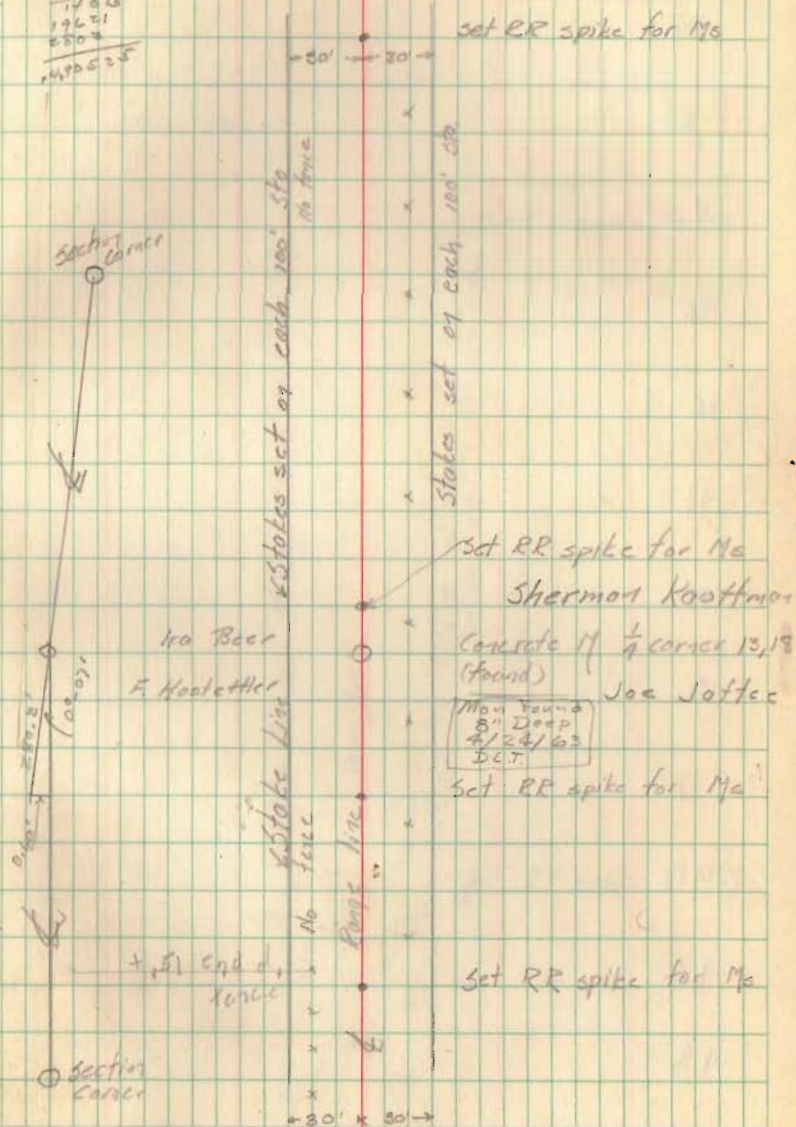 19621
2803
.490525
Set RR spike for Ms
30' 30'
Section
Corner
Stakes set on each 100' Sta
No fence
Stakes set on each 100' Sta.
Set RR spike for Ms
Sherman Kauffman
Ira Beer
Concrete M 1/4 corner 13,18
(found)
F. Hostettler
Joe Joftee
Mon Found
8" Deep
4/24/63
D.L.T.
Set RR spike for Ms
280.2'
0°-07'
0.60'
Stake Line
No fence
Range line
+.51 end of
fence
Set RR spike for Ms
Section
Corner
30' 30'